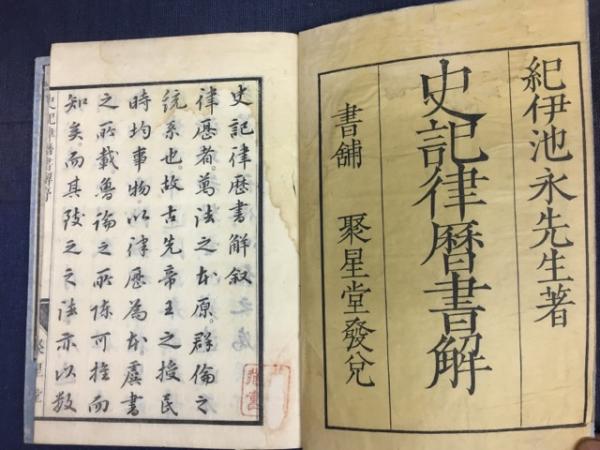 紀伊池永先生著
史記律曆書解
書舖　聚星堂發兌
史記律歷書解叙
律歷者。萬法之本原。群倫之
統系也。故古先帝王之授民
時均事物。以律歷為本。虞書
之所載。魯論之所陳可推而
知矣。而其致之之法亦以数
史記律曆書解序
聚星堂